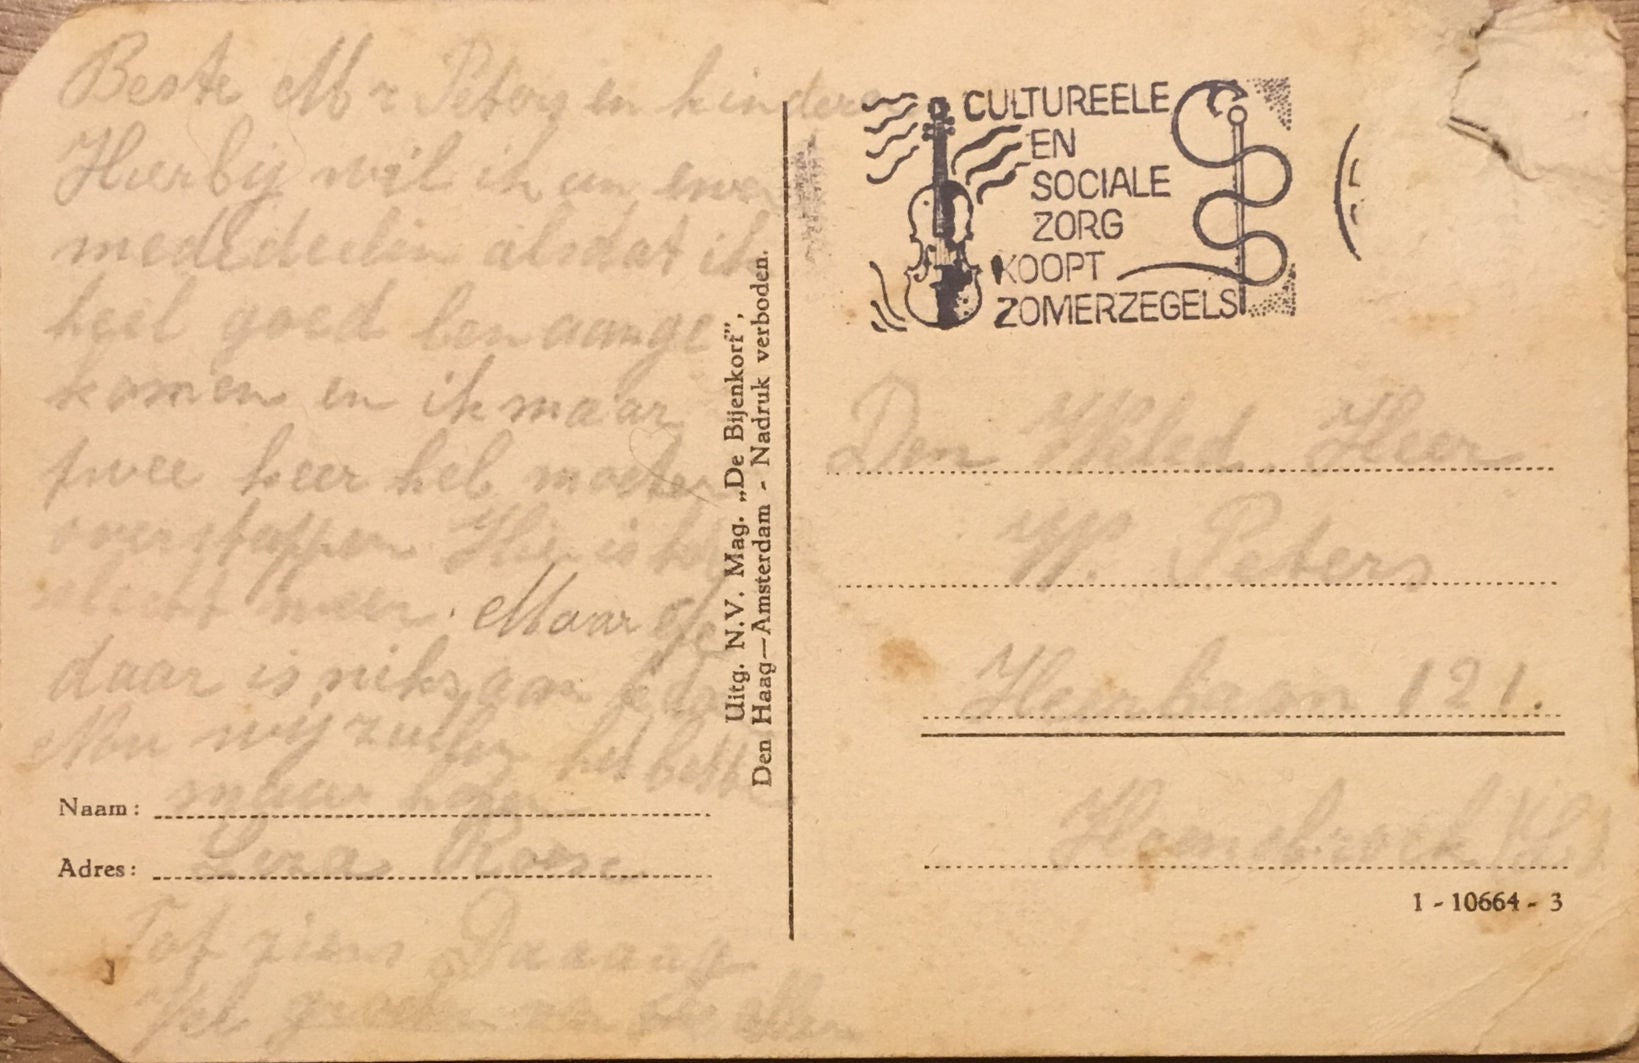 Beste Mr Peters en kinderen
Hierbij wil ik un even
mededeelin alsdat ik
heel goed ben aange
komen en ik maar
twee keer heb moeten
overstappen Hier is het
slecht weer. Maar
daar is niks aan
wij zullen het beste
maar hopen
Tot ziens Daaaag
Vel groeten van
Naam:
Adres:
Uitg. N.V. Mag. „De Bijenkorf”,
Den Haag—Amsterdam - Nadruk verboden.
CULTUREELE
EN
SOCIALE
ZORG
KOOPT
ZOMERZEGELS
Den Weled. Heer
W. Peters
Heerlaan 121.
Hoensbroek (L.)
1 - 10664 - 3